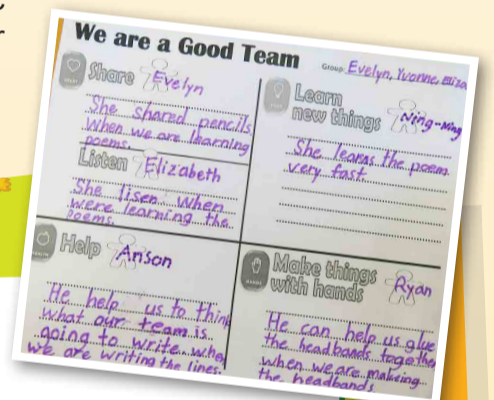 We are a Good Team
Group Evelyn, Yvonne, Eliza
Share Evelyn
She shared pencils
when we are learning
poems.
Listen Elizabeth
She lisen when
were learning the
poems.
Learn
new things Ning-Ning
She learns the poem
very fast
Help Anson
He help us to think
what our team is
going to write when
we are writing the lines.
Make things
with hands Ryan
He can help us glue
the headbands together
when we are makeing
the headbands